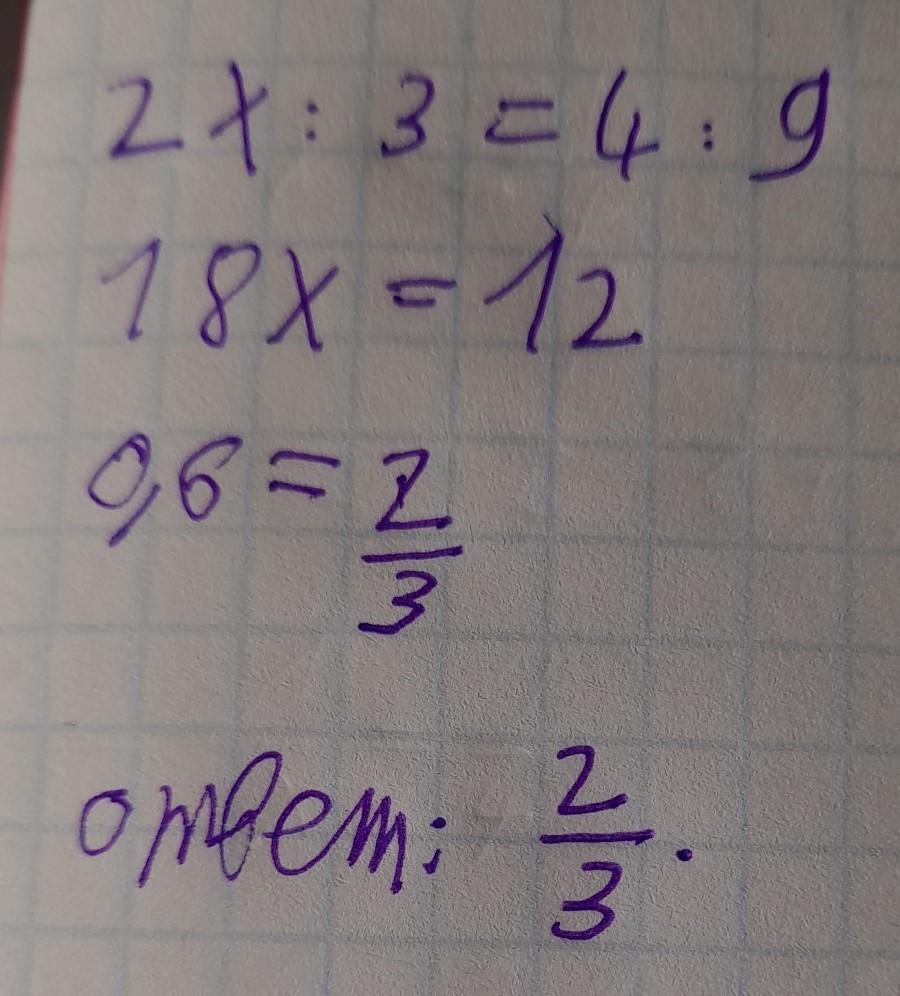 2x : 3 = 4 : 9
18x = 12
0,6 = 2/3
ответ: 2/3.